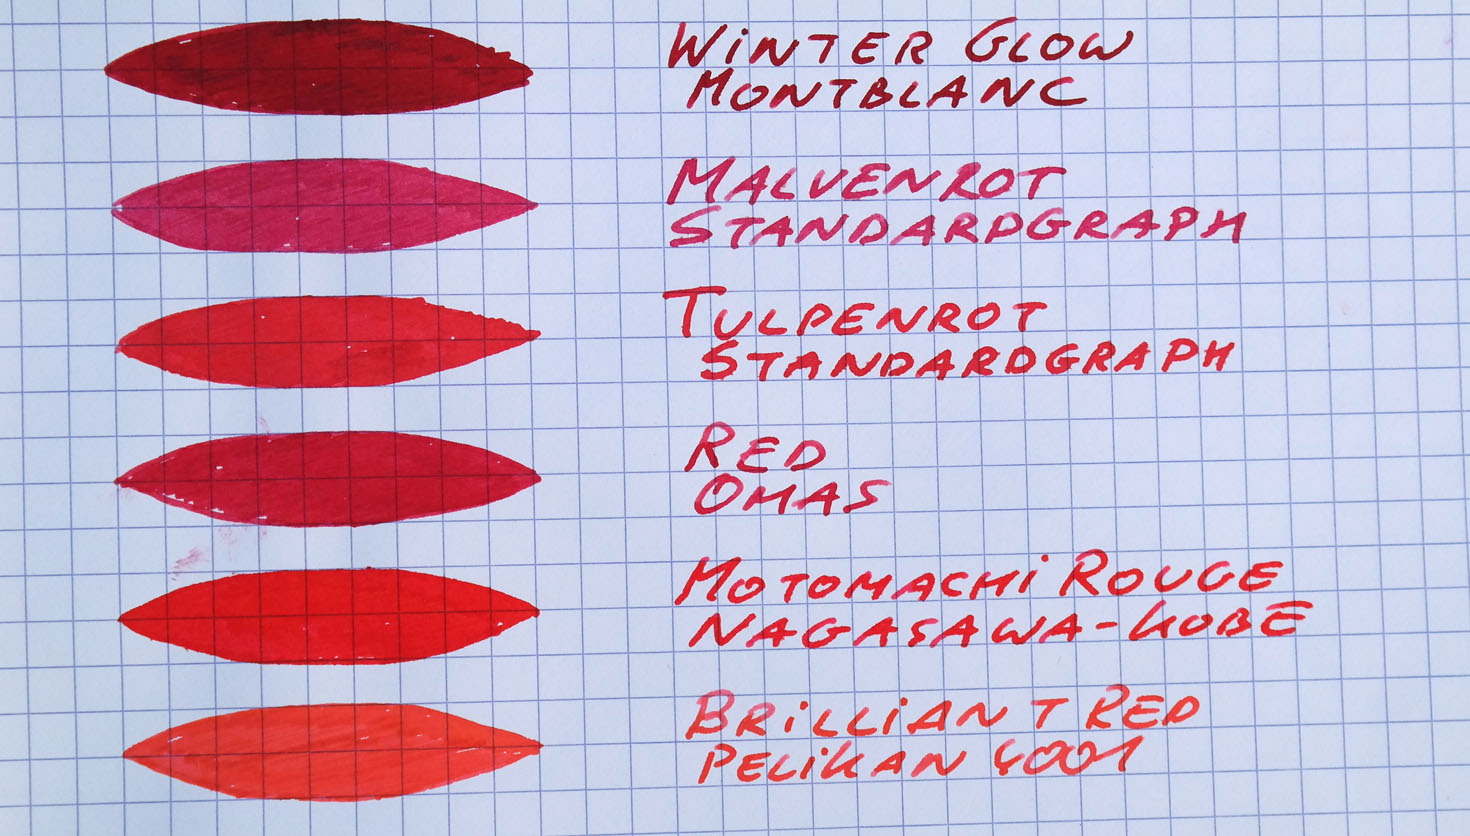 WINTER GLOW
MONTBLANC
MALVENROT
STANDARDGRAPH
TULPENROT
STANDARDGRAPH
RED
OMAS
MOTOMACHI ROUGE
NAGASAWA-KOBE
BRILLIANT RED
PELIKAN 4001